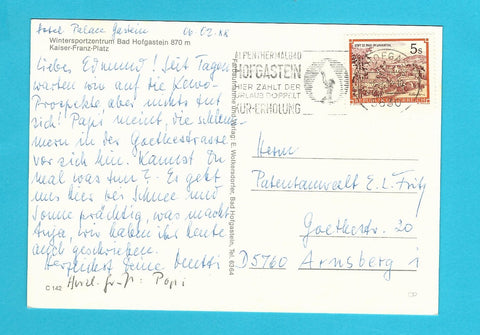 Hotel Palace Gastein 06.02.88
Wintersportzentrum Bad Hofgastein 870 m
Kaiser-Franz-Platz
Lieber Edmund! Seit Tagen
warten wir auf die
Prospekte aber nichts tut
sich! Papi meint, die schlum-
mern in der Goethestrasse
vor sich hin. Kannst Du
mal was tun? Es geht
uns hier bei Schnee und
Sonne prächtig, was macht
Anja, wir haben ihr heute
auch geschrieben.
Herzlichst Deine Mutti
Herzl. Gr. Papi
C 142
Farbaufnahme und Verlag: E. Wolkersdorfer, Bad Hofgastein, Tel. 6264
ALPENTHERMALBAD
HOFGASTEIN
HIER ZÄHLT DER
URLAUB DOPPELT
KUR-ERHOLUNG
5s
Herrn
Patentanwalt E. L. Fritz
Goethestr. 20
D5760 Arnsberg 1